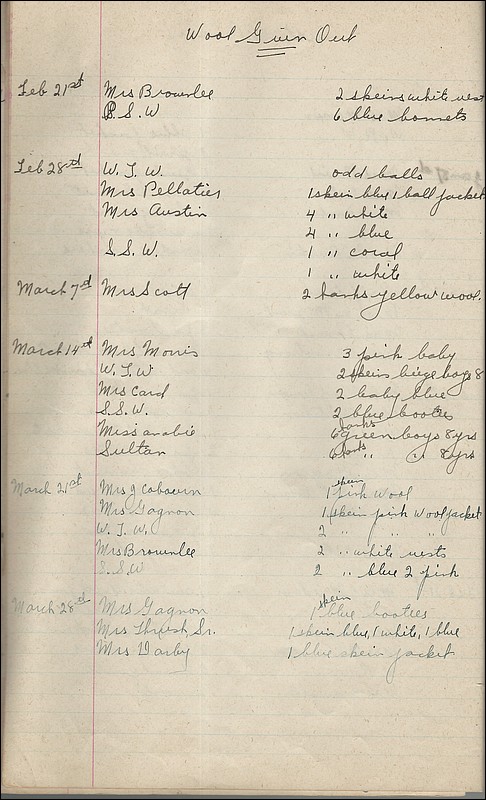 Wool Given Out
Feb 21st Mrs Brownlee 2 skeins white vest
S.S.W 6 blue bonnets
Feb 28rd W.I.W. odd balls
Mrs Pellatier 1 skein blue 1 ball jacket
Mrs Austin 4 " white
4 " blue
S.S.W. 1 " coral
1 " white
March 7rd Mrs Scott 2 hanks yellow wool.
March 14rd Mrs Morris 3 pink baby
W.I.W 2 skeins beige boys 8
Mrs Card 2 baby blue
S.S.W. 2 blue bootees
Miss Arabie 6 hanks green boys 8 yrs
Sultan 6 hanks " " 8 yrs
March 21st Mrs J Cobourn 1 skein pink wool
Mrs Gagnon 1 skein pink wool jacket
W.I.W. 2 " " "
Mrs Brownlee 2 " white vests
S.S.W 2 " blue 2 pink
March 28rd Mrs Gagnon 1 skein blue bootees
Mrs Thrush, Sr. 1 skein blue, 1 white, 1 blue
Mrs Darby 1 blue skein jacket